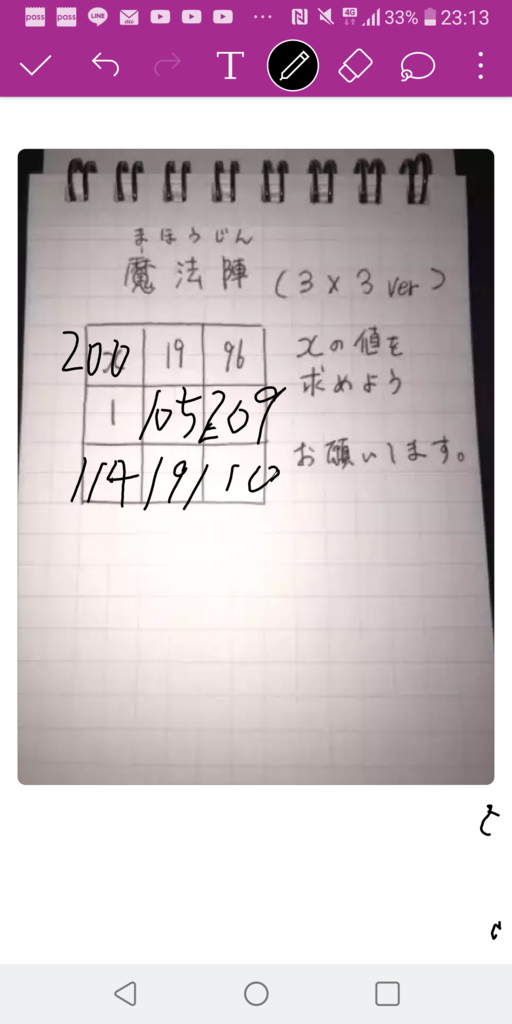 pass pass LINE 4G 33% 23:13
T
まほうじん
魔法陣 (3 x 3 ver)
200 19 96
1 105 209
114 191 10
xの値を
求めよう
お願いします。